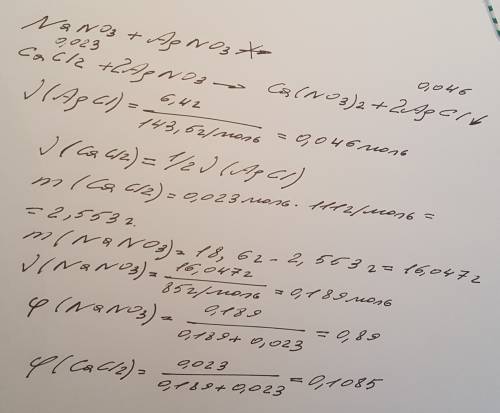 NaNO3 + AgNO3 ↛
0,023 0,046
CaCl2 + 2AgNO3 → Ca(NO3)2 + 2AgCl↓
ν(AgCl) = 6,42 / 143,5г/моль = 0,046 моль
ν(CaCl2) = 1/2 ν(AgCl)
m(CaCl2) = 0,023моль · 111г/моль =
= 2,553г.
m(NaNO3) = 18,6г - 2,553г = 16,047г
ν(NaNO3) = 16,047г / 85г/моль = 0,189моль
φ(NaNO3) = 0,189 / 0,189 + 0,023 = 0,89
φ(CaCl2) = 0,023 / 0,189 + 0,023 = 0,1085